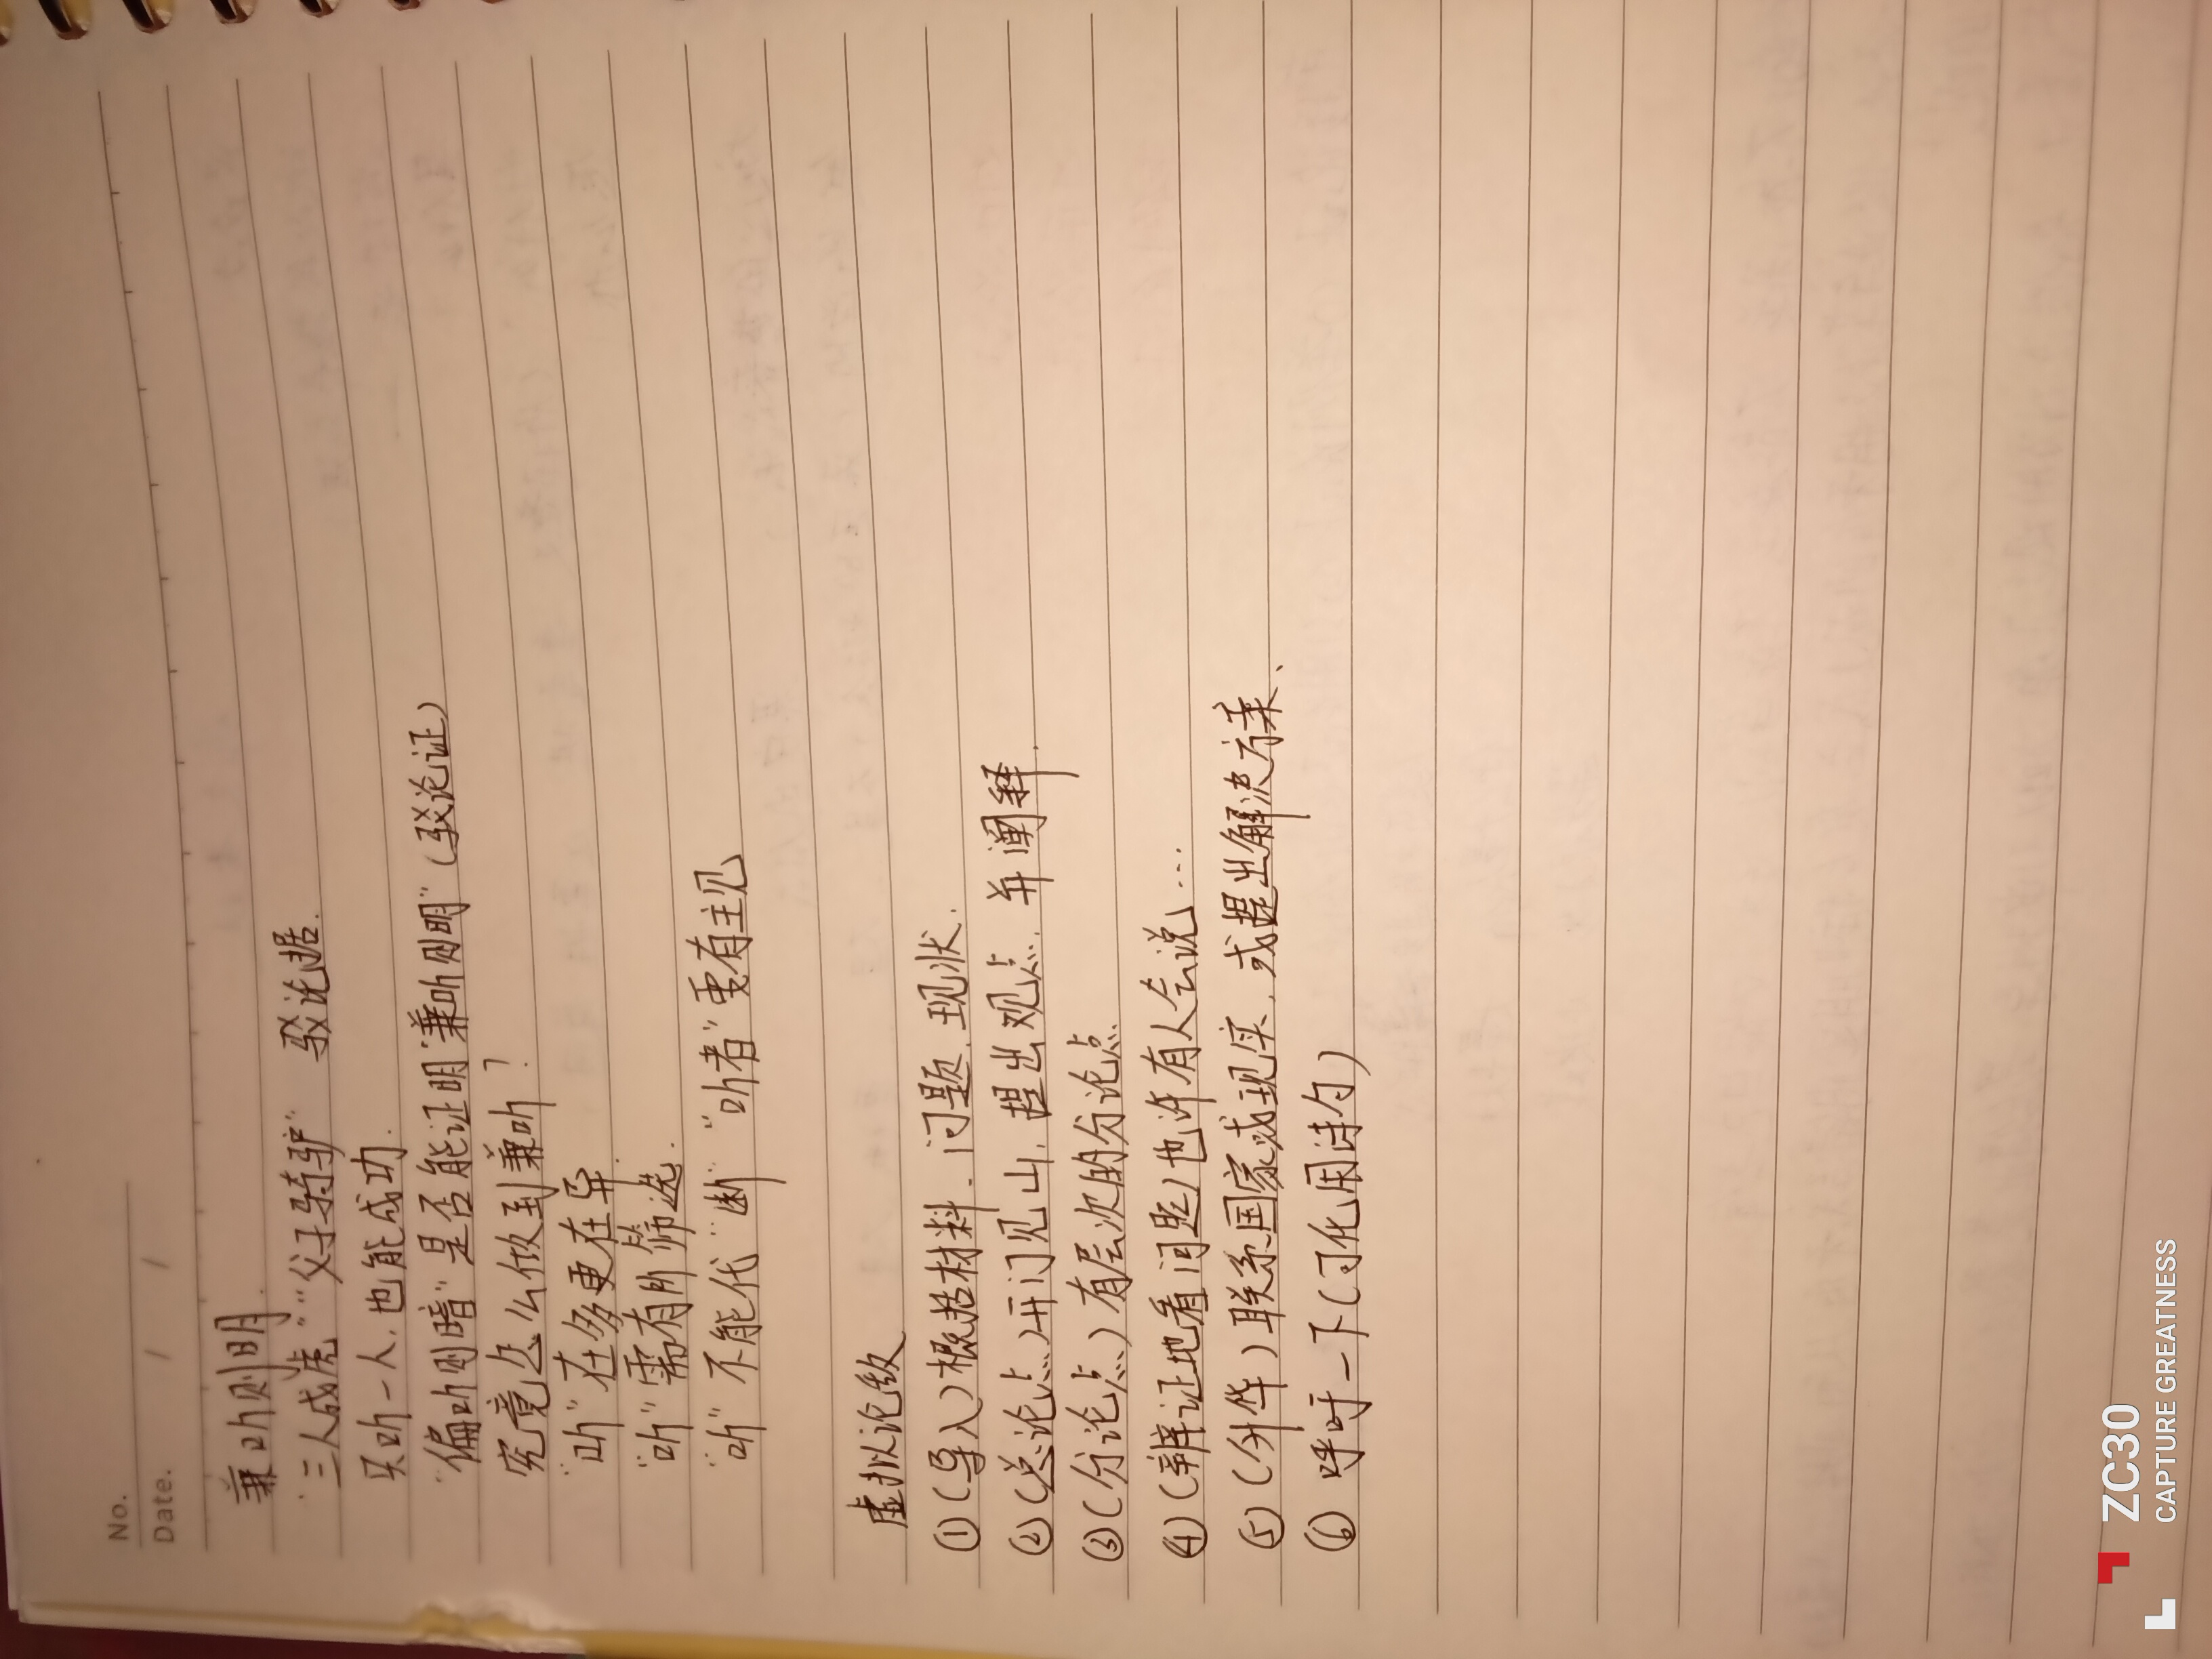 No.
Date. / /
兼听则明.
"三人成虎""父子骑驴" 驳论据.
只听一人,也能成功.
"偏听则暗"是否能证明"兼听则明"(驳论证)
究竟怎么做到兼听?
"听"在多更在异.
"听"需有所筛选.
"听"不能代"断" "听者"要有主见
虚拟论敌
①(导入)概括材料.问题.现状.
②(总论点)开门见山,提出观点.并阐释.
③(分论点)有层次的分论点
④(辨证地看问题)也许有人会说...
⑤(升华)联系国家或现实,或提出解决方案、
⑥呼吁一下(可化用诗句)
ZC30
CAPTURE GREATNESS